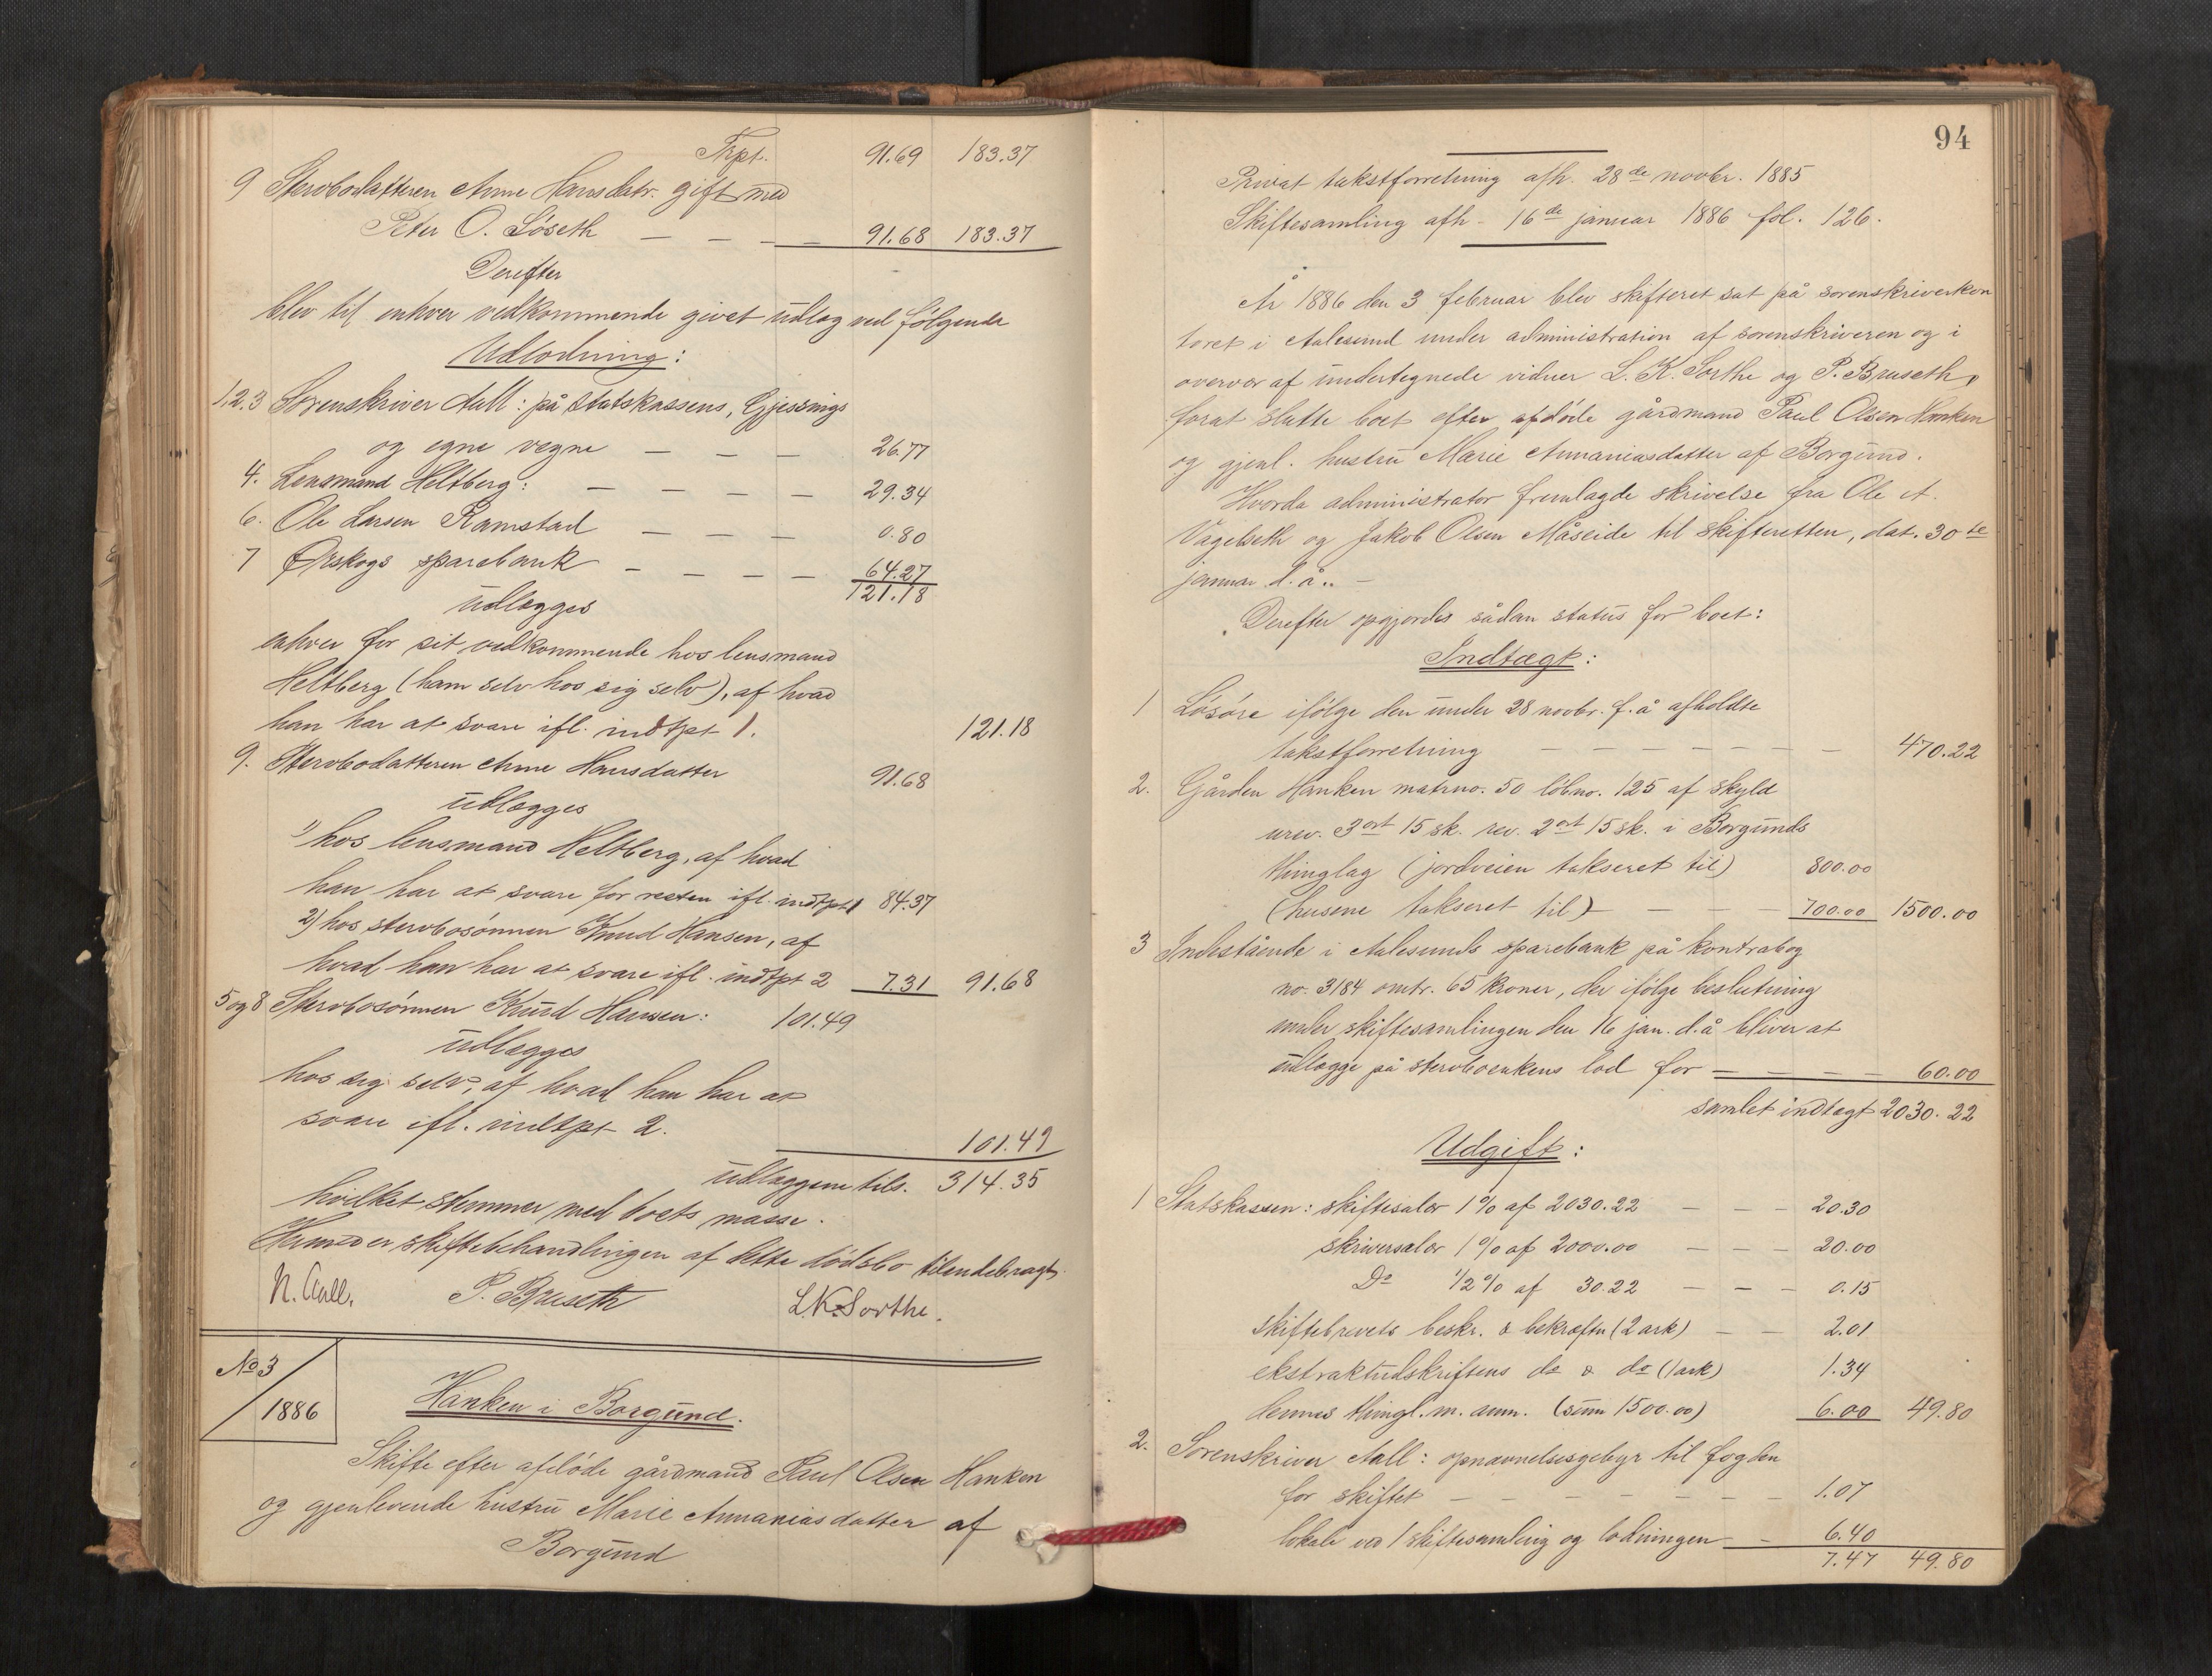 Trpt. 91.69 183.37
9 Stervbodatteren Anne Hansdatr. gift med
Peter O. Løseth — — — — 91.68 183.37
Derefter
blev til enhver vedkommende givet udlæg ved følgende
Udlodning:
1,2,3 Sorenskriver Aall: på statskassens, Gjessings
og egne vegne — — — 26.77
4. Lensmand Heltberg: — — — — 29.34
6. Ole Larsen Ramstad — — — 0.80
7 Ørskogs sparebank — — — — 64.27
121.18
udlægges
enhver for sit vedkommende hos lensmand
Heltberg (ham selv hos sig selv), af hvad
han har at svare ifl. indtpt 1. 121.18
9. Stervbodatteren Anne Hansdatter 91.68
udlægges
1) hos lensmand Heltberg, af hvad
han har at svare for resten ifl. indtpt 1 84.37
2) hos stervbosønnen Knud Hansen, af
hvad han har at svare ifl. indtpt 2 7.31 91.68
5 og 8 Stervbosønnen Knud Hansen: 101.49
udlægges
hos sig selv, af hvad han har at
svare ifl. indtpt 2. 101.49
udlæggene tils. 314.35
hvilket stemmer med boets masse.
Hermed er skiftebehandlingen af dette dødsbo tilendebragt.
N. Aall. P. Bruseth L.K. Sorthe.
No 3 / 1886
Hanken i Borgund.
Skifte efter afdøde gårdmand Paul Olsen Hanken
og gjenlevende hustru Marie Annaniasdatter af
Borgund
94
Privat takstforretning afh. 28de novbr. 1885
Skiftesamling afh - 16de januar 1886 fol. 126.
År 1886 den 3 februar blev skifteret sat på sorenskriverkon
toret i Aalesund under administration af sorenskriveren og i
overvær af undertegnede vidner L. K. Sorthe og P. Bruseth,
forat slutte boet efter afdøde gårdmand Paul Olsen Hanken
og gjenl. hustru Marie Annaniasdatter af Borgund.
Hvorda administrator fremlagde skrivelse fra Ole A.
Vågelseth og Jakob Olsen Måseide til skifteretten, dat. 30te
januar d. å.. —
Derefter opgjordes sådan status for boet:
Indtægt:
1 Løsøre ifølge den under 28 novbr. f. å afholdte
takstforretning — — — — — — — 470.22
2. Gården Hanken matrno. 50 løbno. 125 af skyld
urev. 3 ort 15 sk. rev. 2 ort 15 sk. i Borgunds
thinglag (jordveien takseret til) 800.00
(husene takseret til) — — — 700.00 1500.00
3 Indestående i Aalesunds sparebank på kontrabog
no. 3184 omtr. 65 kroner, der ifølge beslutning
under skiftesamlingen den 16 jan. d. å bliver at
udlægge på stervboenkens lod for — — — — 60.00
samlet indtægt 2030.22
Udgift:
1 Statskassen: skiftesalær 1% af 2030.22 — — — 20.30
skriversalær 1% af 2000.00 — — — 20.00
Do 1/2% af 30.22 — — — 0.15
skiftebrevets beskr. & bekræftn (2 ark) — — 2.01
ekstraktudskriftens do & do (1 ark) 1.34
dennes thingl. m. anm. (sum 1500.00) 6.00 49.80
2. Sorenskriver Aall: opnævnelsesgebyr til fogden
for skiftet — — — — — — — 1.07
lokale ved 1 skiftesamling og lodningen — 6.40
7.47 49.80